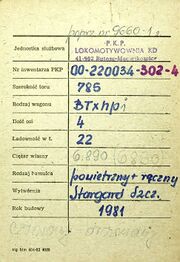 poprz nr 9660-1
Jednostka służbowa
P.K.P.
LOKOMOTYWOWNIA KD
Nr inwentarza PKP 00-220034-302-4
Szerokość toru 785
Rodzaj wagonu BTxhpi
Ilość osi 4
Ładowność w t. 22
Ciężar własny 6.890
Rodzaj hamulca powietrzny + ręczny
Wytwórnia Stargard Szcz.
Rok budowy 1981
czterro